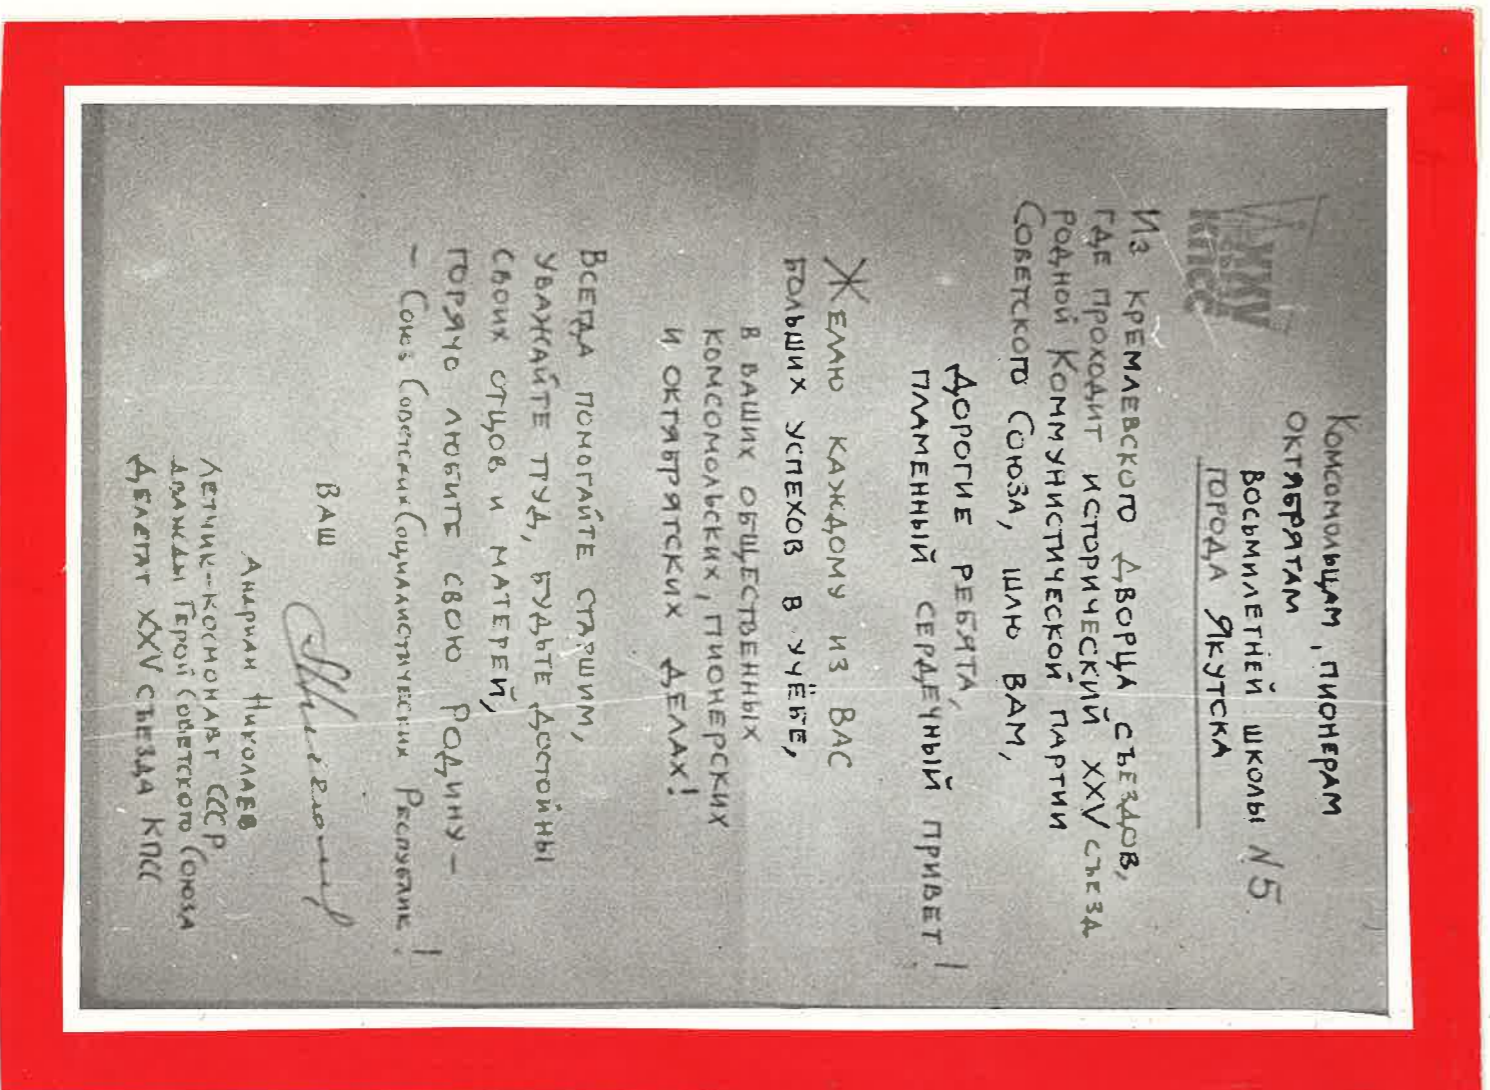 XXV
КПСС
Комсомольцам, пионерам
октябрятам
восьмилетней школы N 5
города Якутска
Из Кремлевского дворца съездов,
где проходит исторический XXV съезд
родной Коммунистической партии
Советского Союза, шлю вам,
дорогие ребята,
пламенный сердечный привет!
Желаю каждому из вас
больших успехов в учёбе,
в ваших общественных
комсомольских, пионерских
и октябрятских делах!
Всегда помогайте старшим,
уважайте труд, будьте достойны
своих отцов и матерей,
горячо любите свою Родину –
– Союз Советских Социалистических Республик!
Ваш
Андриян Николаев
Летчик-космонавт СССР
дважды Герой Советского Союза
делегат XXV съезда КПСС